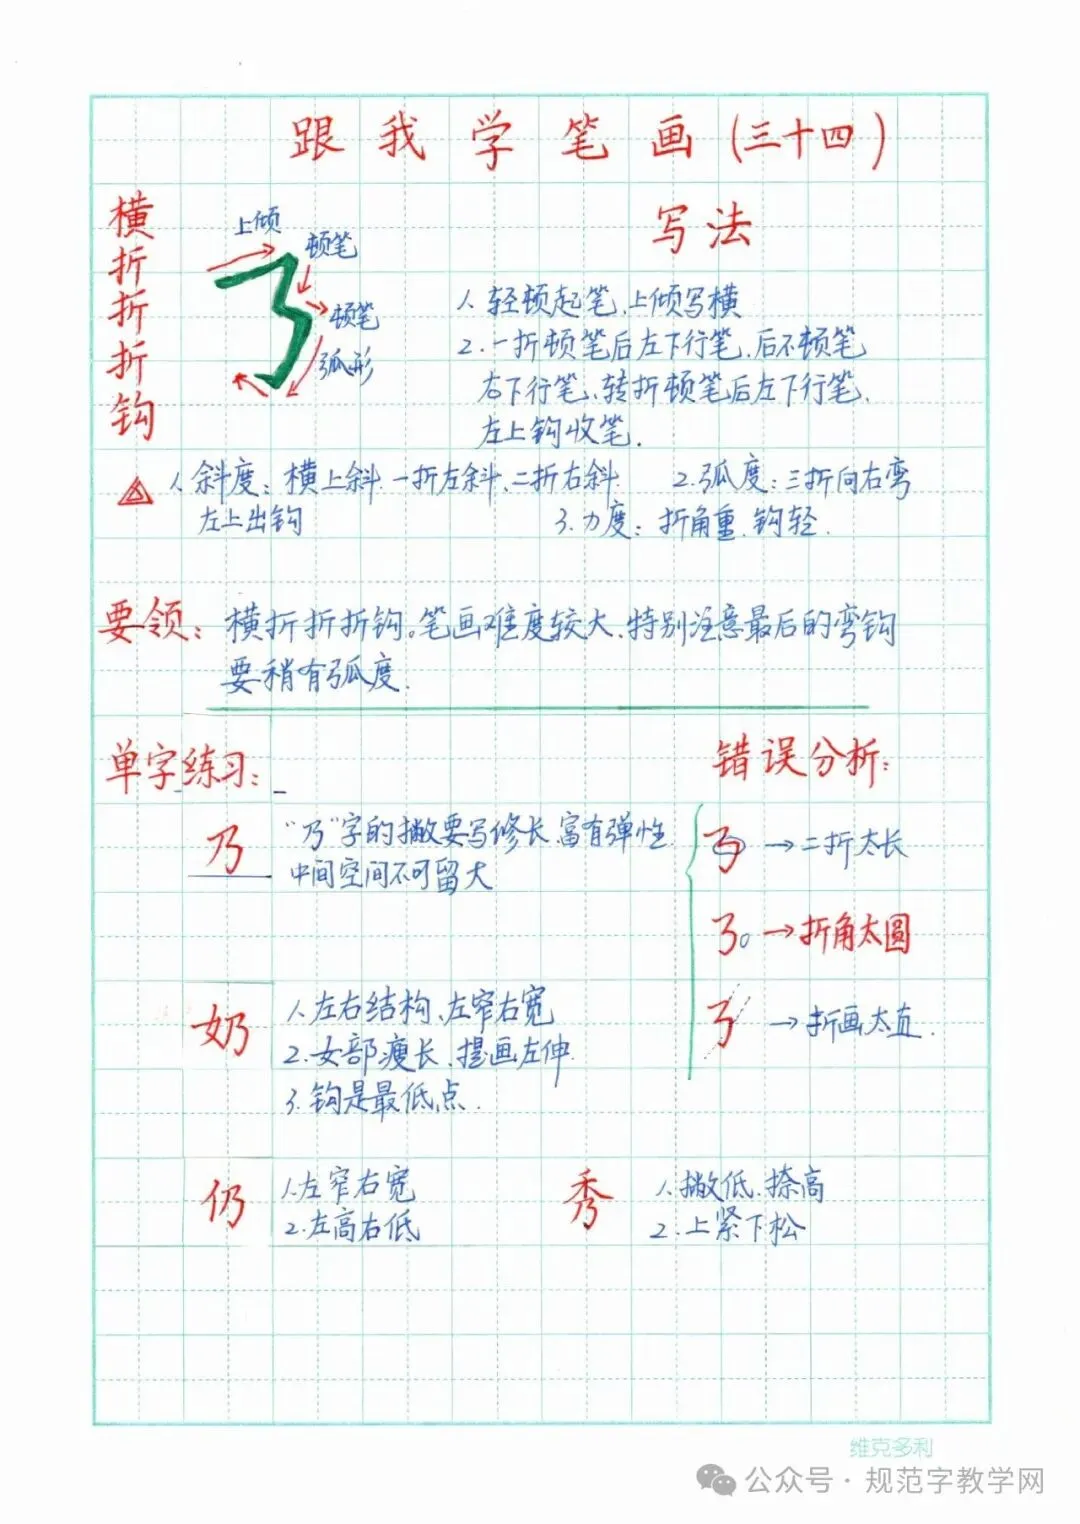 跟我学笔画(三十四)
横折折折钩
上倾
顿笔
顿笔
弧形
写法
1、轻顿起笔、上倾写横
2、一折顿笔后左下行笔、后不顿笔
右下行笔、转折顿笔后左下行笔、
左上钩收笔.
1、斜度:横上斜、一折左斜、二折右斜
左上出钩
2.弧度:三折向右弯
3.力度:折角重、钩轻.
要领:横折折折钩。笔画难度较大、特别注意最后的弯钩
要稍有弧度.
单字练习:
乃
“乃”字的撇要写修长、富有弹性
中间空间不可留大
奶
1、左右结构、左窄右宽
2.女部瘦长、提画左伸
3.钩是最低点.
仍
1.左窄右宽
2.左高右低
秀
1、撇低、捺高
2.上紧下松
错误分析:
→二折太长
→折角太圆
→折画太直.
维克多利
公众号·规范字教学网